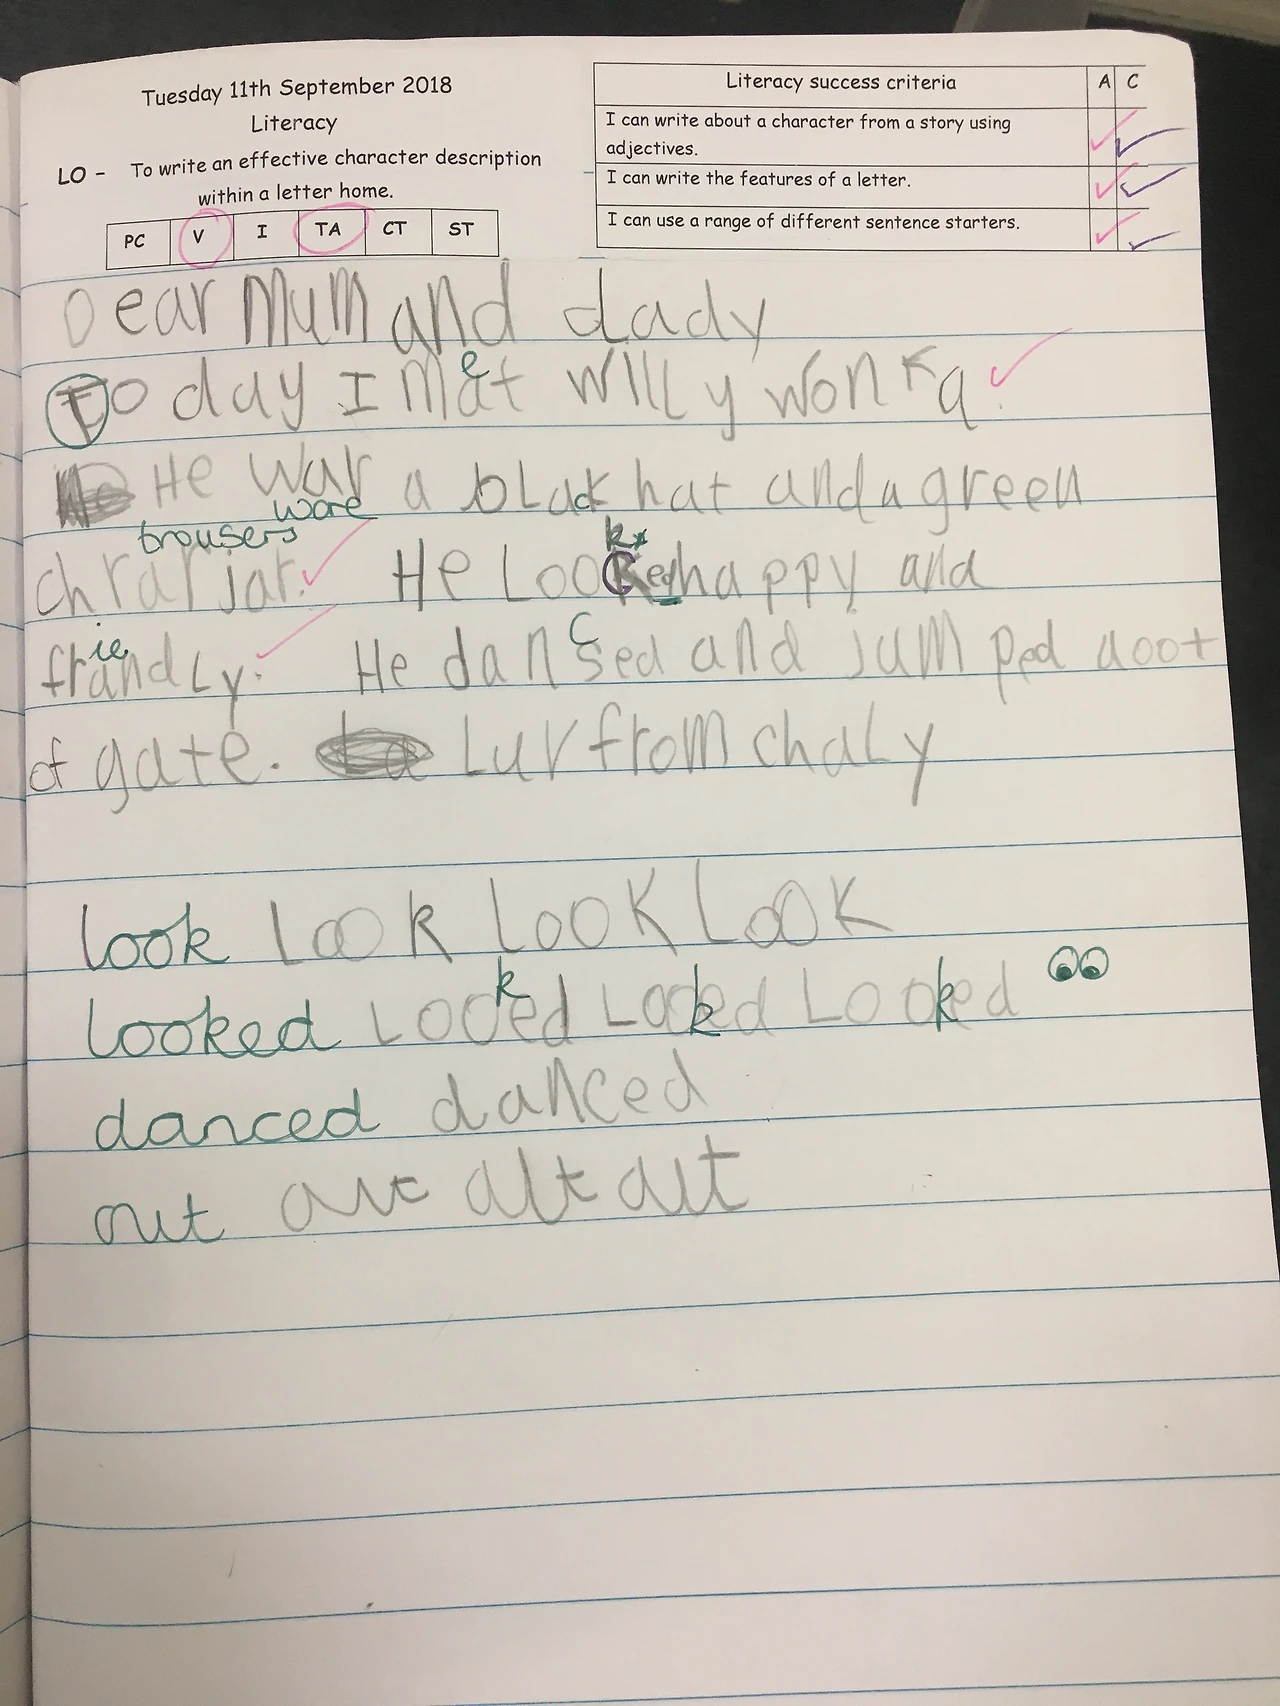 Tuesday 11th September 2018
Literacy
LO - To write an effective character description
within a letter home.
PC V I TA CT ST
Literacy success criteria A C
I can write about a character from a story using
adjectives.
I can write the features of a letter.
I can use a range of different sentence starters.
Dear Mum and dady
e
To day I Mat willy wonka.
He war a black hat and a green
wore
trousers
chrarjar. He Looked happy and
k
ie c
friandly. He dansed and jumped aoot
of gate. Luv from chaly
look Look Look Look
looked Looked Looked Looked
danced danced
out out alt aut